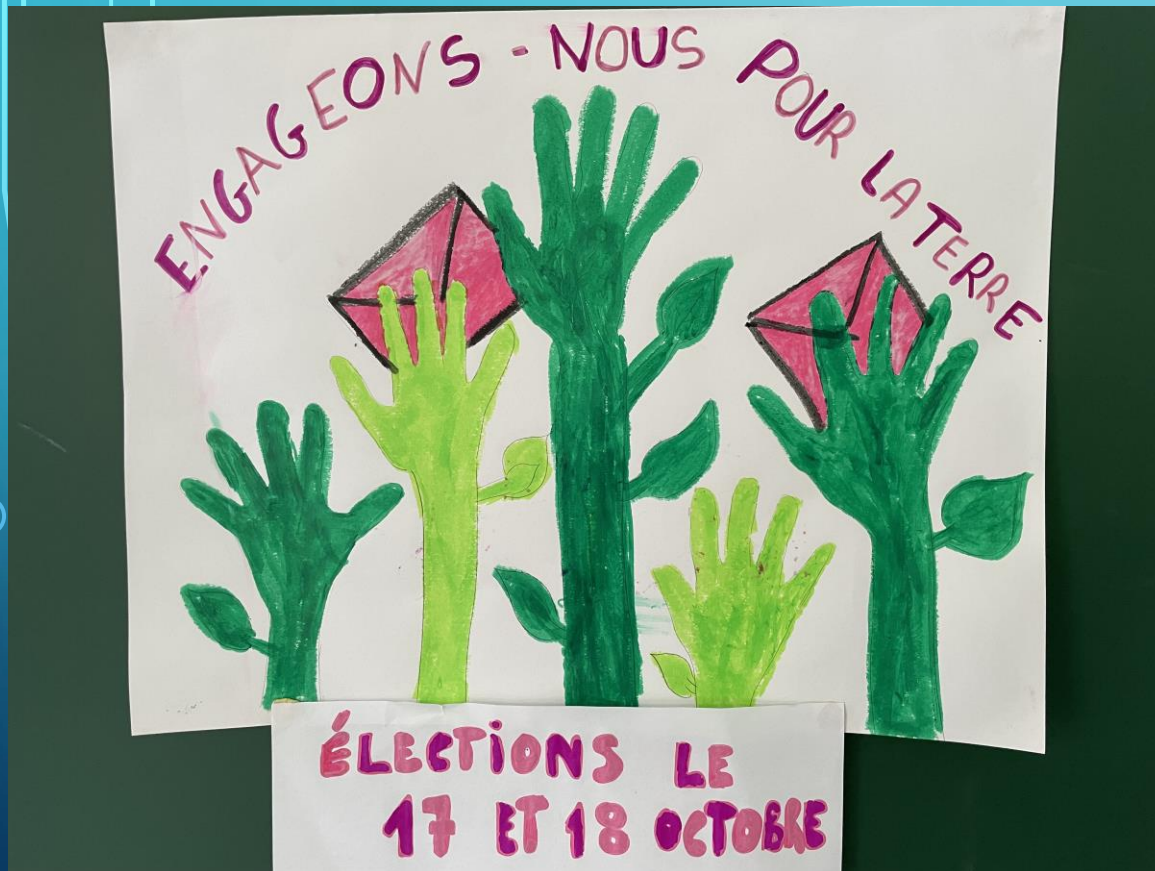 ENGAGEONS - NOUS POUR LA TERRE
ÉLECTIONS LE
17 ET 18 OCTOBRE